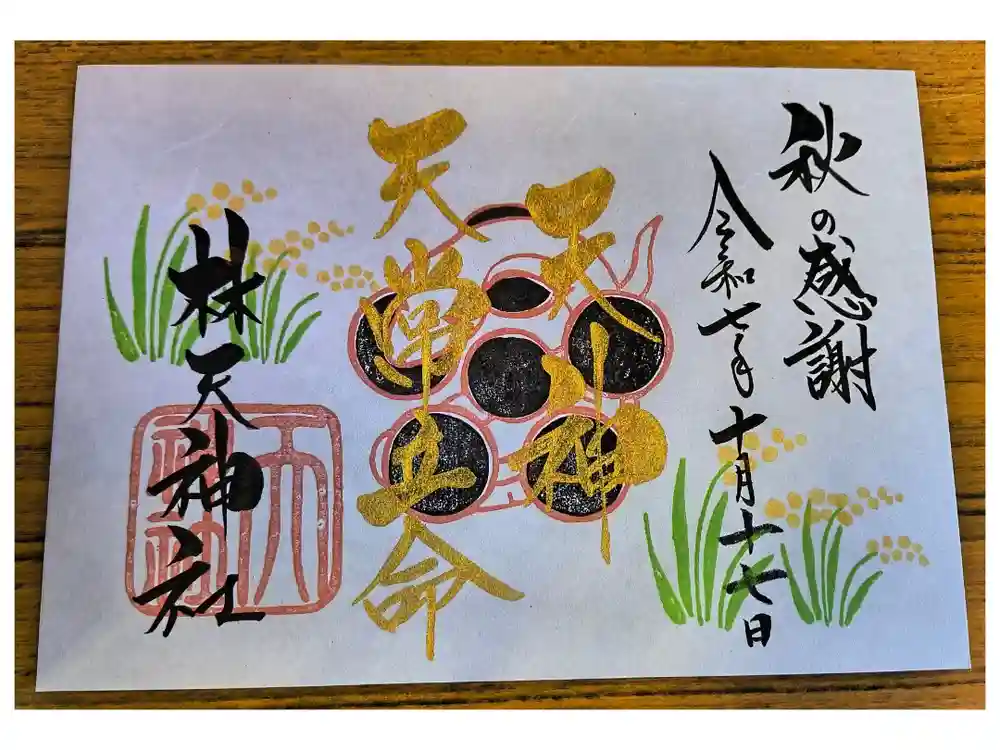 秋の感謝
令和七年十月十七日
天神
天常立命
林天神社
天
神社